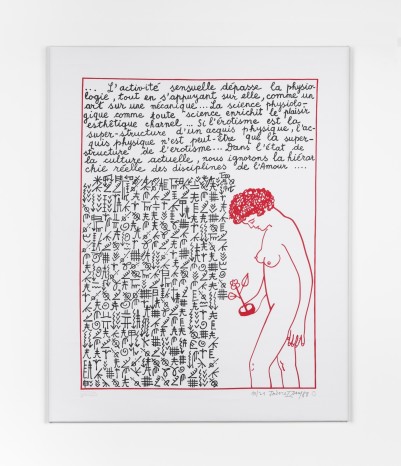 ... L'activité sensuelle dépasse la physio-
logie, tout en s'appuyant sur elle, comme un
art sur une mécanique... La science physiolo-
gique comme toute science enrichit le plaisir
esthétique charnel... Si l'érotisme est la
super-structure d'un acquis physique, l'ac-
quis physique n'est peut-être que la super-
structure de l'érotisme... Dans l'état de
la culture actuelle, nous ignorons la hiérar-
chie réelle des disciplines de l'Amour ....